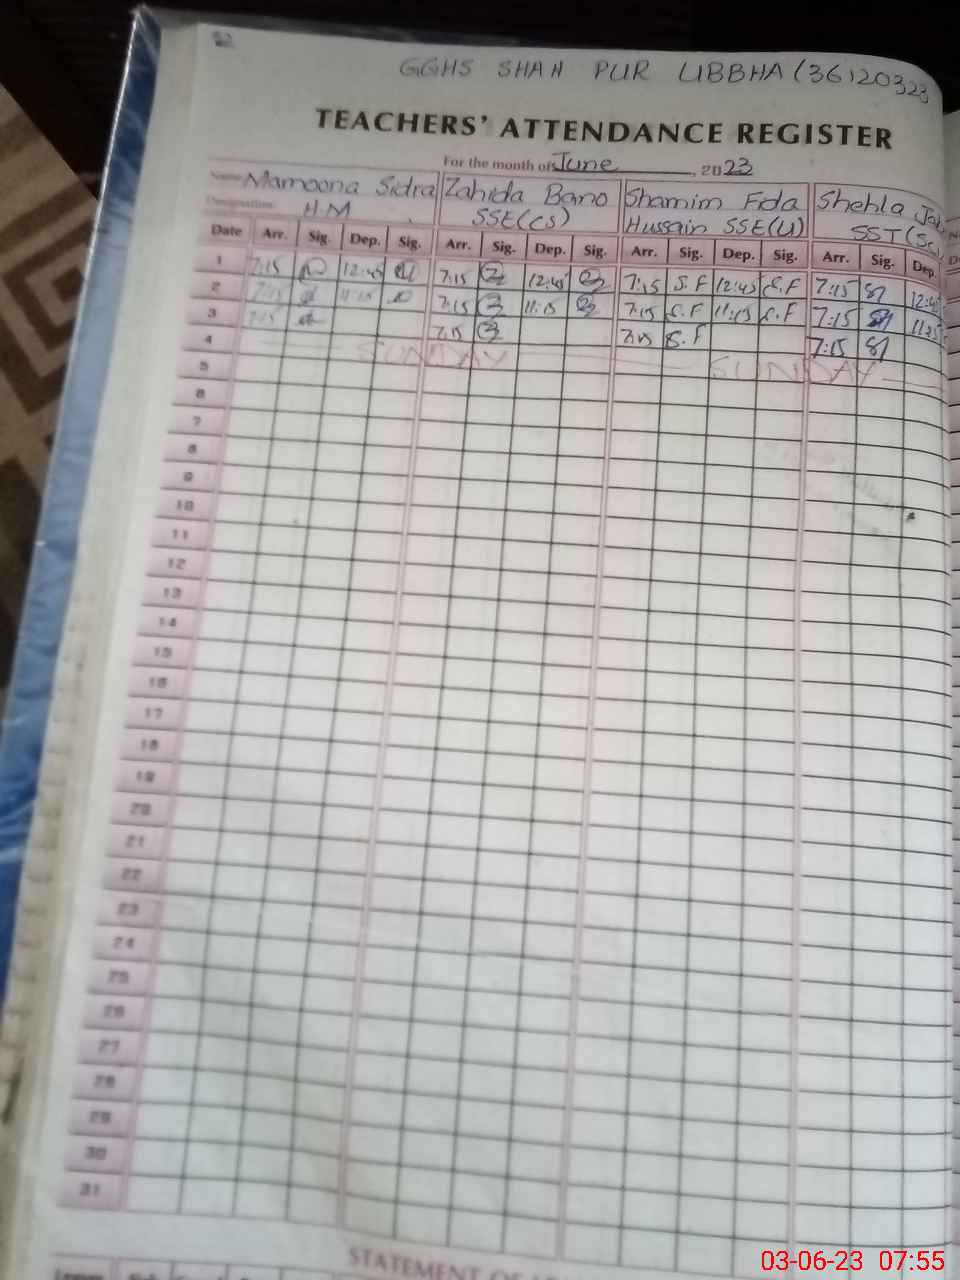 GGHS SHAH PUR LIBBHA (36120323
TEACHERS' ATTENDANCE REGISTER
For the month of June, 2023
Name Mamoona Sidra Zahida Bano Shamim Fida Shehla
Designation H.M SSE(CS) Hussain SSE(U) SST(Sc
Date Arr. Sig. Dep. Sig. Arr. Sig. Dep. Sig. Arr. Sig. Dep. Sig. Arr. Sig. Dep.
1 7:15 12:45 7:15 12:45 7:15 S.F 12:45 S.F 7:15 12:45
2 7:15 11:15 7:15 11:15 7:15 S.F 11:15 S.F 7:15 11:15
3 7:15 7:15 7:15 S.F 7:15
4 SUNDAY SUNDAY
5
6
7
8
9
10
11
12
13
14
15
16
17
18
19
20
21
22
23
24
25
26
27
28
29
30
31
STATEMENT OF
03-06-23 07:55